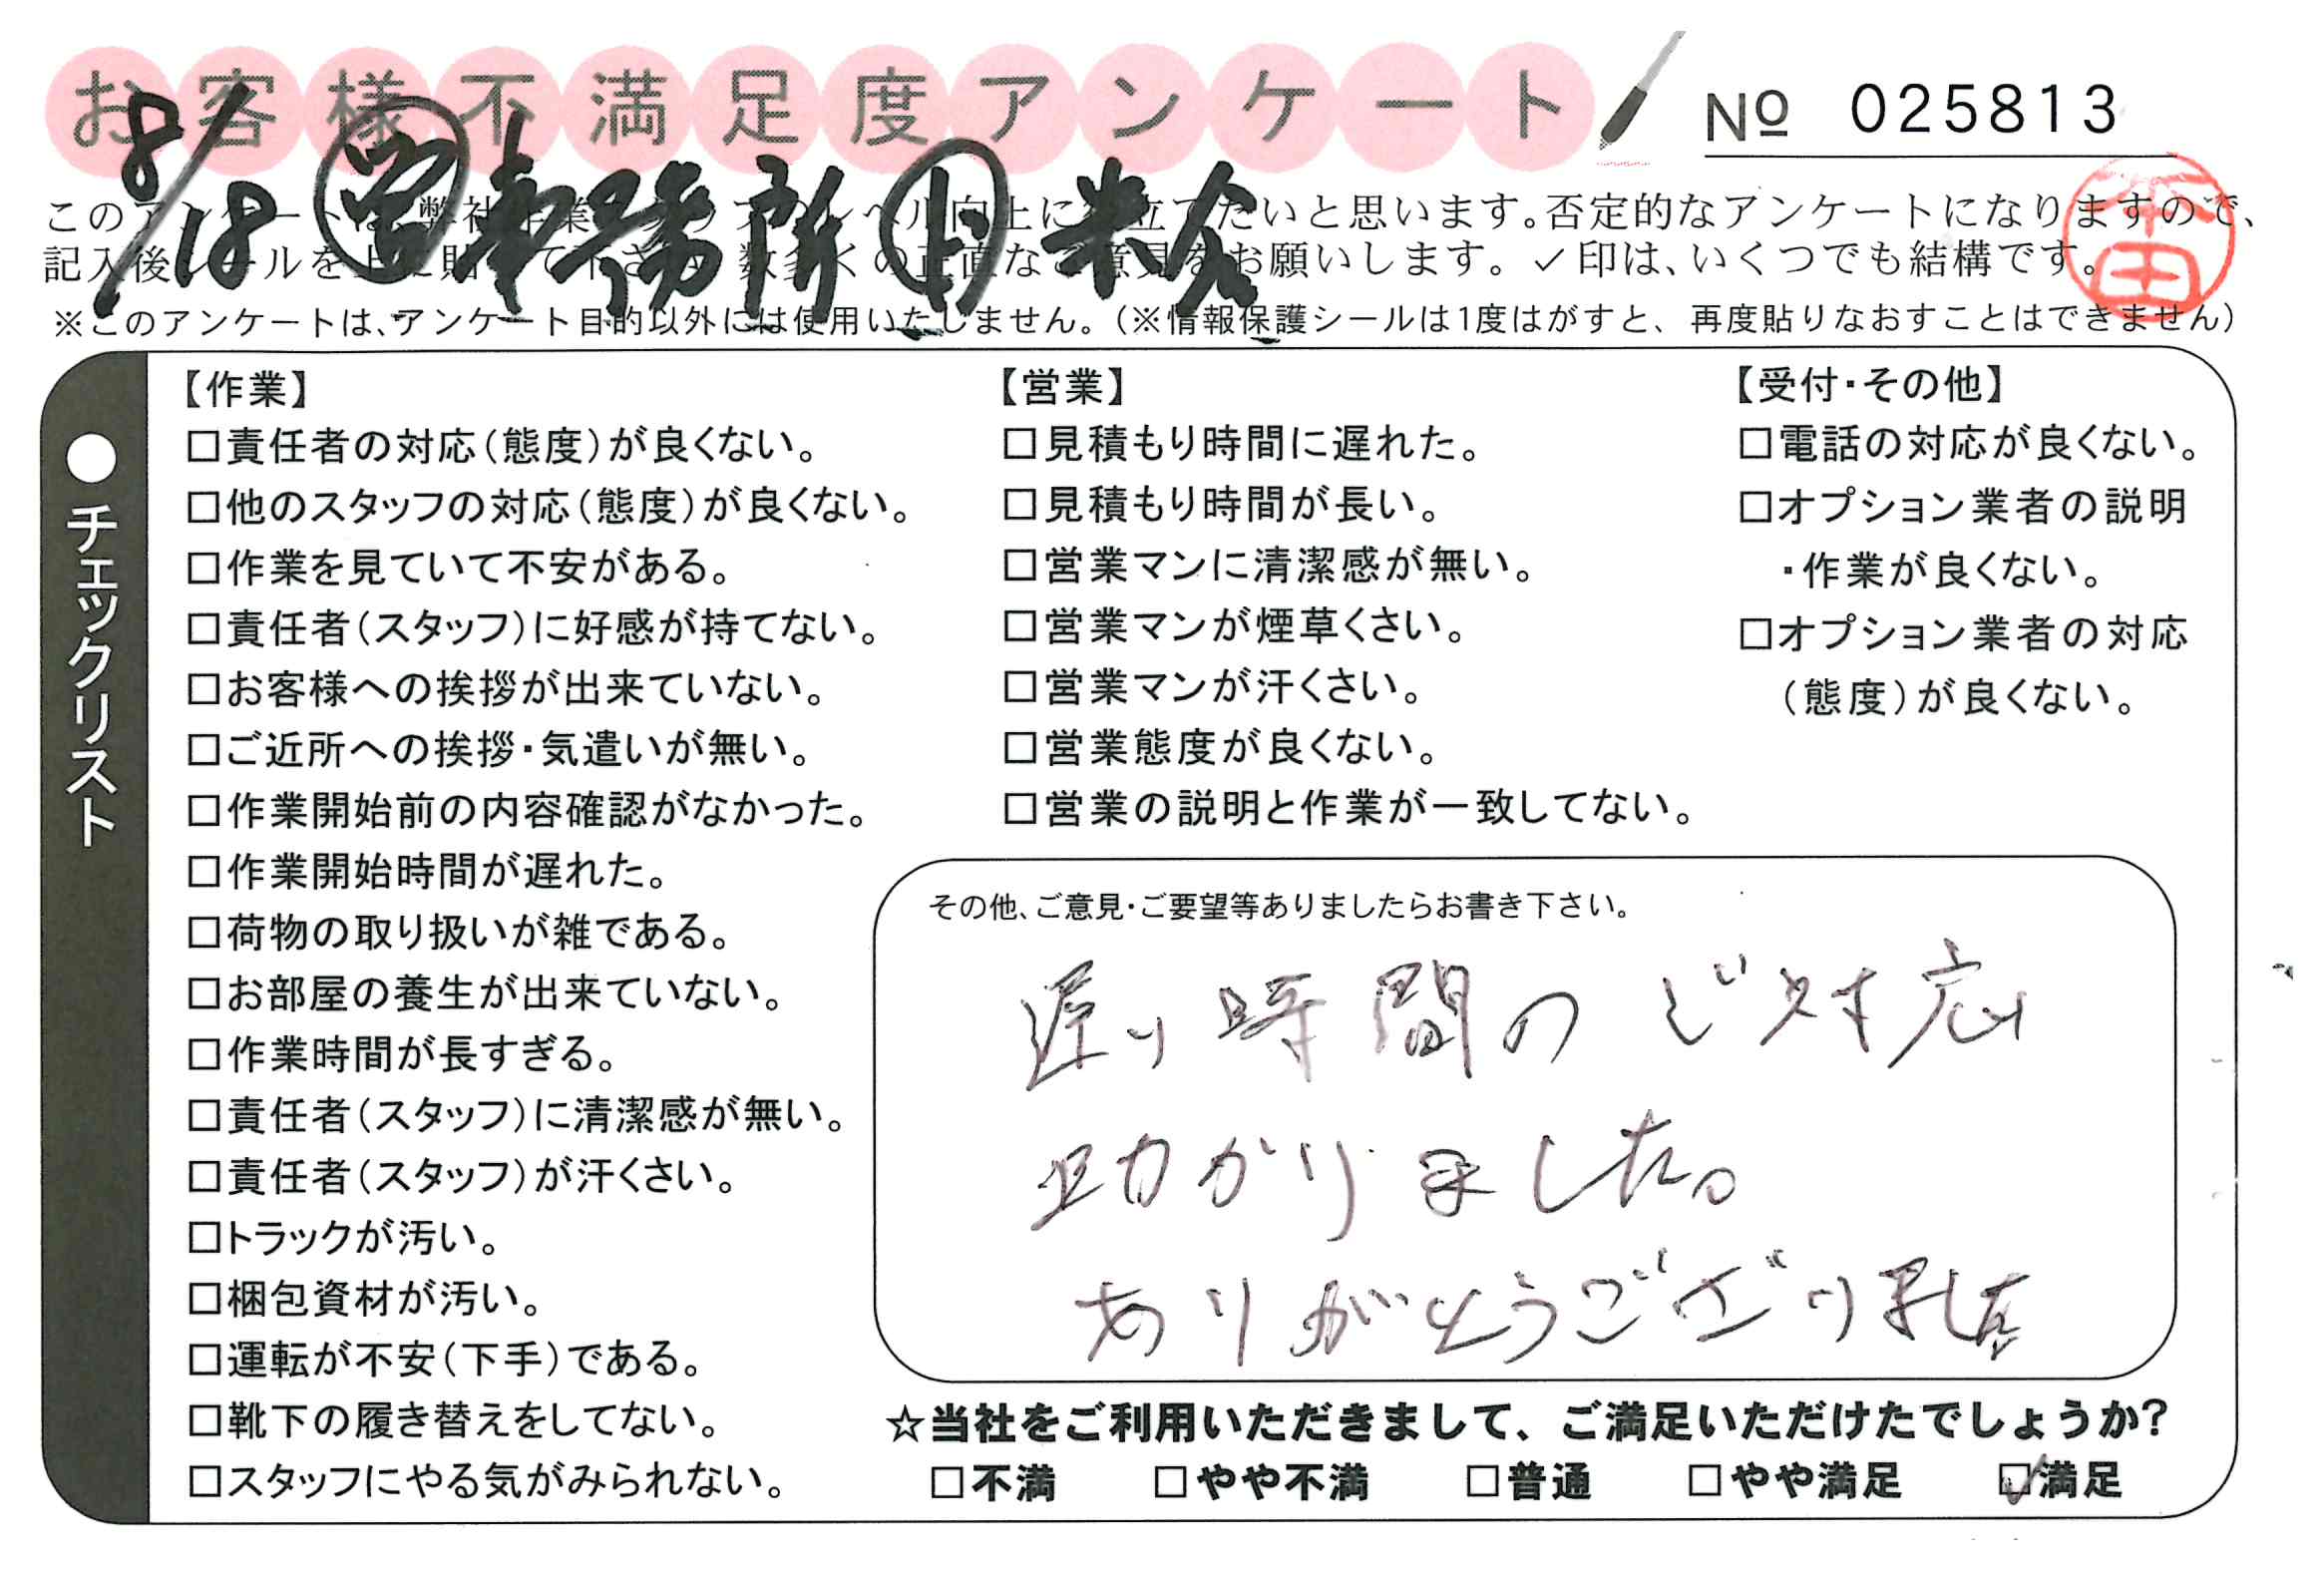 お客様不満足度アンケート
No 025813
8/18 宮 事務所 日 米倉
このアンケートは、弊社作業スタッフのレベル向上に役立てたいと思います。否定的なアンケートになりますので、
記入後シールを上に貼って下さい。数多くの正直なご意見をお願いします。✓印は、いくつでも結構です。
※このアンケートは、アンケート目的以外には使用いたしません。(※情報保護シールは1度はがすと、再度貼りなおすことはできません)
●チェックリスト
【作業】
□責任者の対応(態度)が良くない。
□他のスタッフの対応(態度)が良くない。
□作業を見ていて不安がある。
□責任者(スタッフ)に好感が持てない。
□お客様への挨拶が出来ていない。
□ご近所への挨拶・気遣いが無い。
□作業開始前の内容確認がなかった。
□作業開始時間が遅れた。
□荷物の取り扱いが雑である。
□お部屋の養生が出来ていない。
□作業時間が長すぎる。
□責任者(スタッフ)に清潔感が無い。
□責任者(スタッフ)が汗くさい。
□トラックが汚い。
□梱包資材が汚い。
□運転が不安(下手)である。
□靴下の履き替えをしてない。
□スタッフにやる気がみられない。
【営業】
□見積もり時間に遅れた。
□見積もり時間が長い。
□営業マンに清潔感が無い。
□営業マンが煙草くさい。
□営業マンが汗くさい。
□営業態度が良くない。
□営業の説明と作業が一致してない。
【受付・その他】
□電話の対応が良くない。
□オプション業者の説明
・作業が良くない。
□オプション業者の対応
(態度)が良くない。
その他、ご意見・ご要望等ありましたらお書き下さい。
遅い時間のご対応
助かりました。
ありがとうございました
☆当社をご利用いただきまして、ご満足いただけたでしょうか?
□不満 □やや不満 □普通 □やや満足 ☑満足